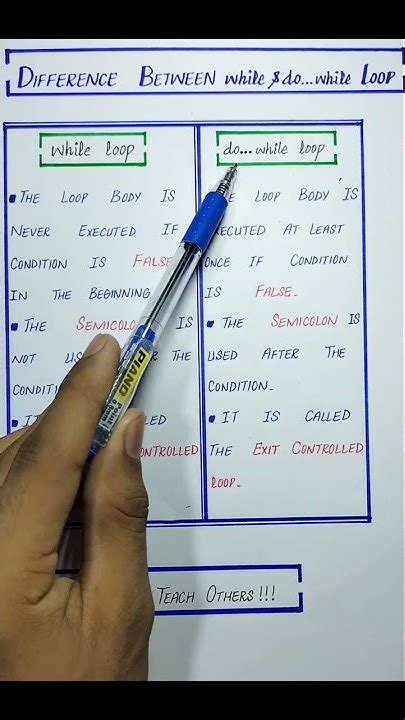 DIFFERENCE BETWEEN while & do...while Loop
while loop
THE LOOP BODY IS
NEVER EXECUTED IF
CONDITION IS FALSE
IN THE BEGINNING
THE SEMICOLO IS
NOT US THE
CONDITI
IT LED
ONTROLLED
do... while loop
E LOOP BODY IS
EXECUTED AT LEAST
ONCE IF CONDITION
IS FALSE.
THE SEMICOLON IS
USED AFTER THE
CONDITION.
IT IS CALLED
THE EXIT CONTROLLED
loop.
PIANO
Point
TEACH OTHERS!!!